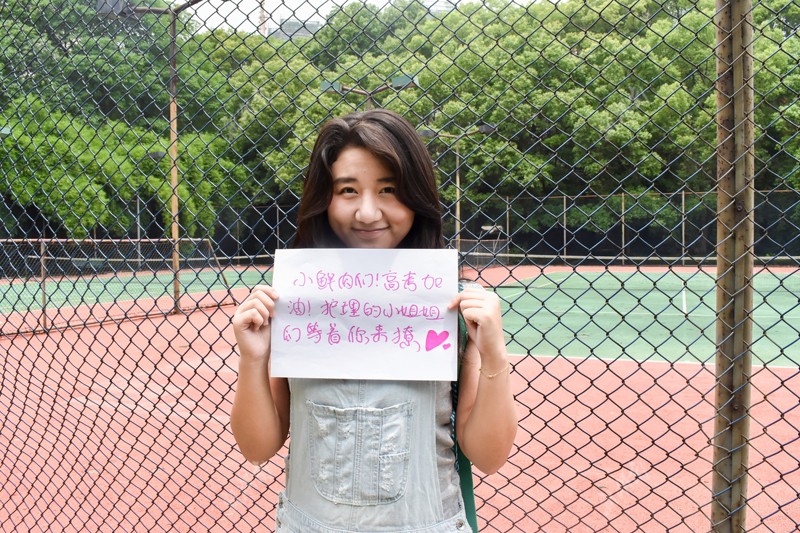 小鲜肉们!高考加
油!护理的小姐姐
们等着你来撩